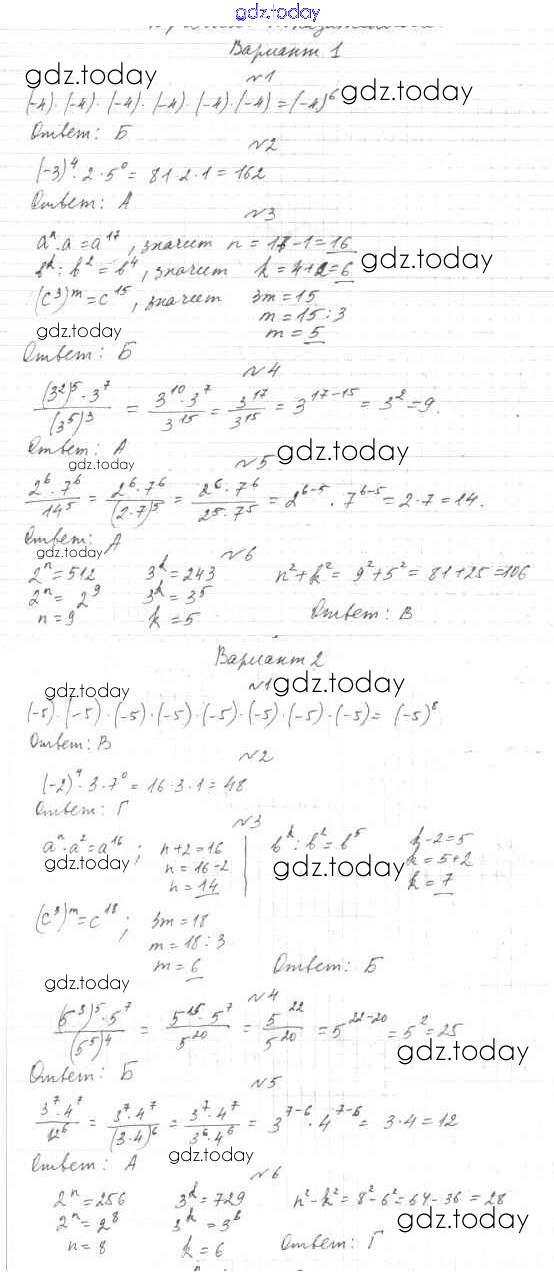 gdz.today
Вариант 1
gdz.today
№1
gdz.today
(-4)·(-4)·(-4)·(-4)·(-4)·(-4)=(-4)⁶
Ответ: Б
№2
(-3)⁴·2·5⁰= 81·2·1=162
Ответ: А
№3
aⁿ·a=a¹⁷, значит n=17-1=16
bᵏ:b²=b⁴, значит k=4+2=6
gdz.today
(c³)ᵐ=c¹⁵, значит 3m=15
m=15:3
gdz.today
m=5
Ответ: Б
№4
(3²)⁵·3⁷/(3⁵)³ = 3¹⁰·3⁷/3¹⁵ = 3¹⁷/3¹⁵ = 3¹⁷⁻¹⁵= 3²=9.
Ответ: А
gdz.today
gdz.today
№5
2⁶·7⁶/14⁵ = 2⁶·7⁶/(2·7)⁵ = 2⁶·7⁶/2⁵·7⁵ = 2⁶⁻⁵·7⁶⁻⁵=2·7=14.
Ответ: А
gdz.today
№6
2ⁿ=512 3ᵏ=243 n²+k²= 9²+5²= 81+25=106
2ⁿ= 2⁹ 3ᵏ=3⁵
n=9 k=5 Ответ: В
Вариант 2
gdz.today
№1
gdz.today
(-5)·(-5)·(-5)·(-5)·(-5)·(-5)·(-5)·(-5)= (-5)⁸
Ответ: В
№2
(-2)⁴·3·7⁰=16·3·1=48
Ответ: Г
№3
aⁿ·a²=a¹⁶; n+2=16 bᵏ:b²=b⁵ k-2=5
gdz.today
n=16-2
gdz.today
k=5+2
n=14 k=7
(c³)ᵐ=c¹⁸; 3m=18
m=18:3
m=6 Ответ: Б
gdz.today
№4
(5³)⁵·5⁷/(5⁵)⁴ = 5¹⁵·5⁷/5²⁰ = 5²²/5²⁰ =5²²⁻²⁰=5²=25
gdz.today
Ответ: Б
№5
3⁷·4⁷/12⁶ = 3⁷·4⁷/(3·4)⁶ = 3⁷·4⁷/3⁶·4⁶ = 3⁷⁻⁶·4⁷⁻⁶= 3·4=12
gdz.today
Ответ: А
№6
2ⁿ=256 3ᵏ=729 n²-k²=8²-6²=64-36=28
2ⁿ=2⁸ 3ᵏ=3⁶
gdz.today
n=8 k=6 Ответ: Г